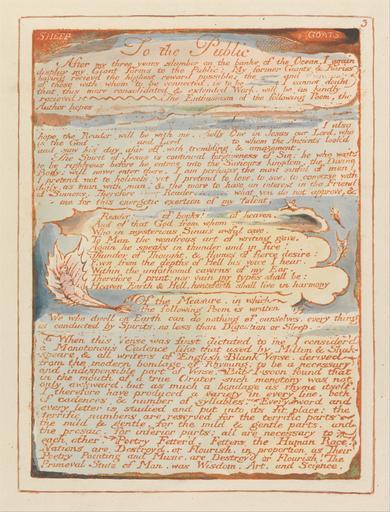 3
SHEEP GOATS
To the Public
After my three years slumber on the banks of the Ocean, I again
display my Giant forms to the Public: My former Giants & Fairies
having reciev'd the highest reward possible: the and
of those with whom to be connected, is to be I cannot doubt
that this more consolidated & extended Work, will be as kindly
recieved The Enthusiasm of the following Poem, the
Author hopes
I also
hope the Reader will be with me, wholly One in Jesus our Lord, who
is the God and Lord to whom the Ancients look'd
and saw his day afar off, with trembling & amazement.
The Spirit of Jesus is continual forgiveness of Sin: he who waits
to be righteous before he enters into the Saviours kingdom, the Divine
Body; will never enter there. I am perhaps the most sinful of men!
I pretend not to holiness! yet I pretend to love, to see, to converse with
daily, as man with man, & the more to have an interest in the Friend
of Sinners. Therefore Reader, what you do not approve, &
me for this energetic exertion of my talent.
Reader! of books! of heaven,
And of that God from whom
Who in mysterious Sinais awful cave
To Man the wondrous art of writing gave,
Again he speaks in thunder and in fire!
Thunder of Thought, & flames of fierce desire:
Even from the depths of Hell his voice I hear,
Within the unfathomd caverns of my Ear.
Therefore I print; nor vain my types shall be:
Heaven, Earth & Hell, henceforth shall live in harmony
Of the Measure, in which
the following Poem is written
We who dwell on Earth can do nothing of ourselves, every thing
is conducted by Spirits, no less than Digestion or Sleep.
When this Verse was first dictated to me I consider'd
a Monotonous Cadence like that used by Milton & Shak-
speare & all writers of English Blank Verse, derived
from the modern bondage of Rhyming; to be a necessary
and indispensible part of Verse. But I soon found that
in the mouth of a true Orator such monotony was not
only awkward, but as much a bondage as rhyme itself.
I therefore have produced a variety in every line, both
of cadences & number of syllables. Every word and
every letter is studied and put into its fit place: the
terrific numbers are reserved for the terrific parts
the mild & gentle, for the mild & gentle parts, and
the prosaic, for inferior parts: all are necessary to
each other. Poetry Fetter'd, Fetters the Human Race!
Nations are Destroy'd, or Flourish, in proportion as Their
Poetry Painting and Music, are Destroy'd or Flourish! The
Primeval State of Man, was Wisdom, Art, and Science.